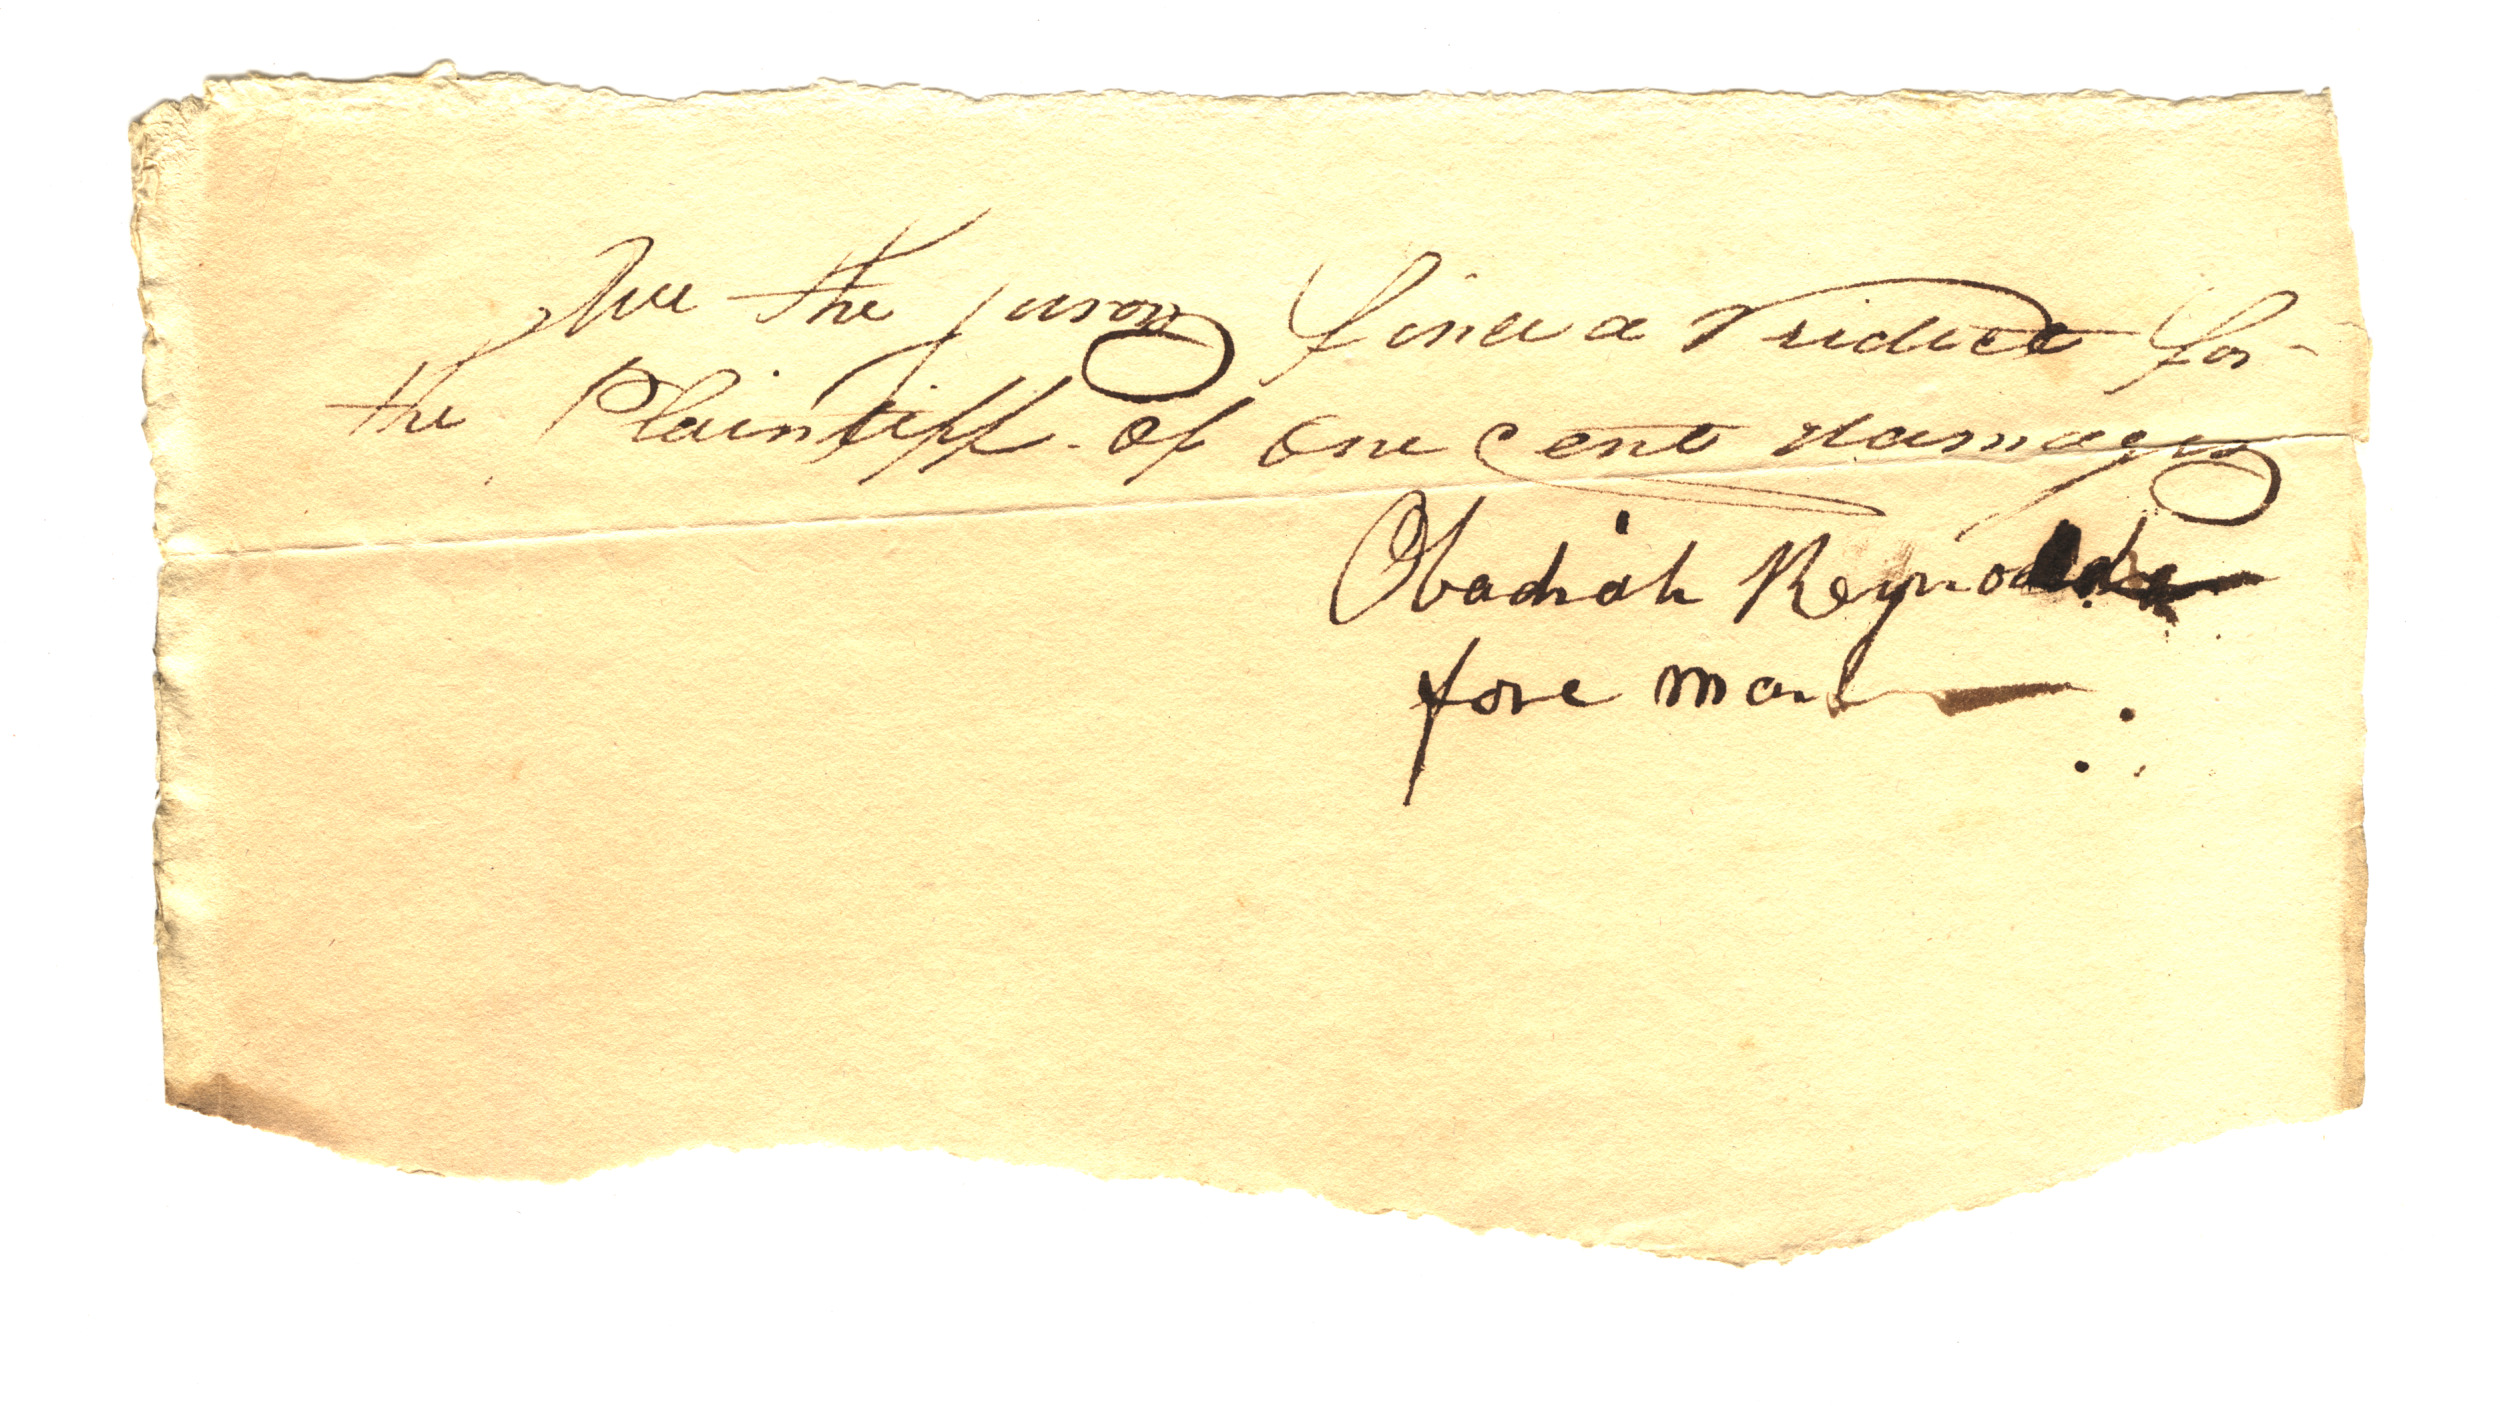 We the jurors find a Vridict for
the Plaintiff of one Cent damages
Obadiah Reynolds
fore man